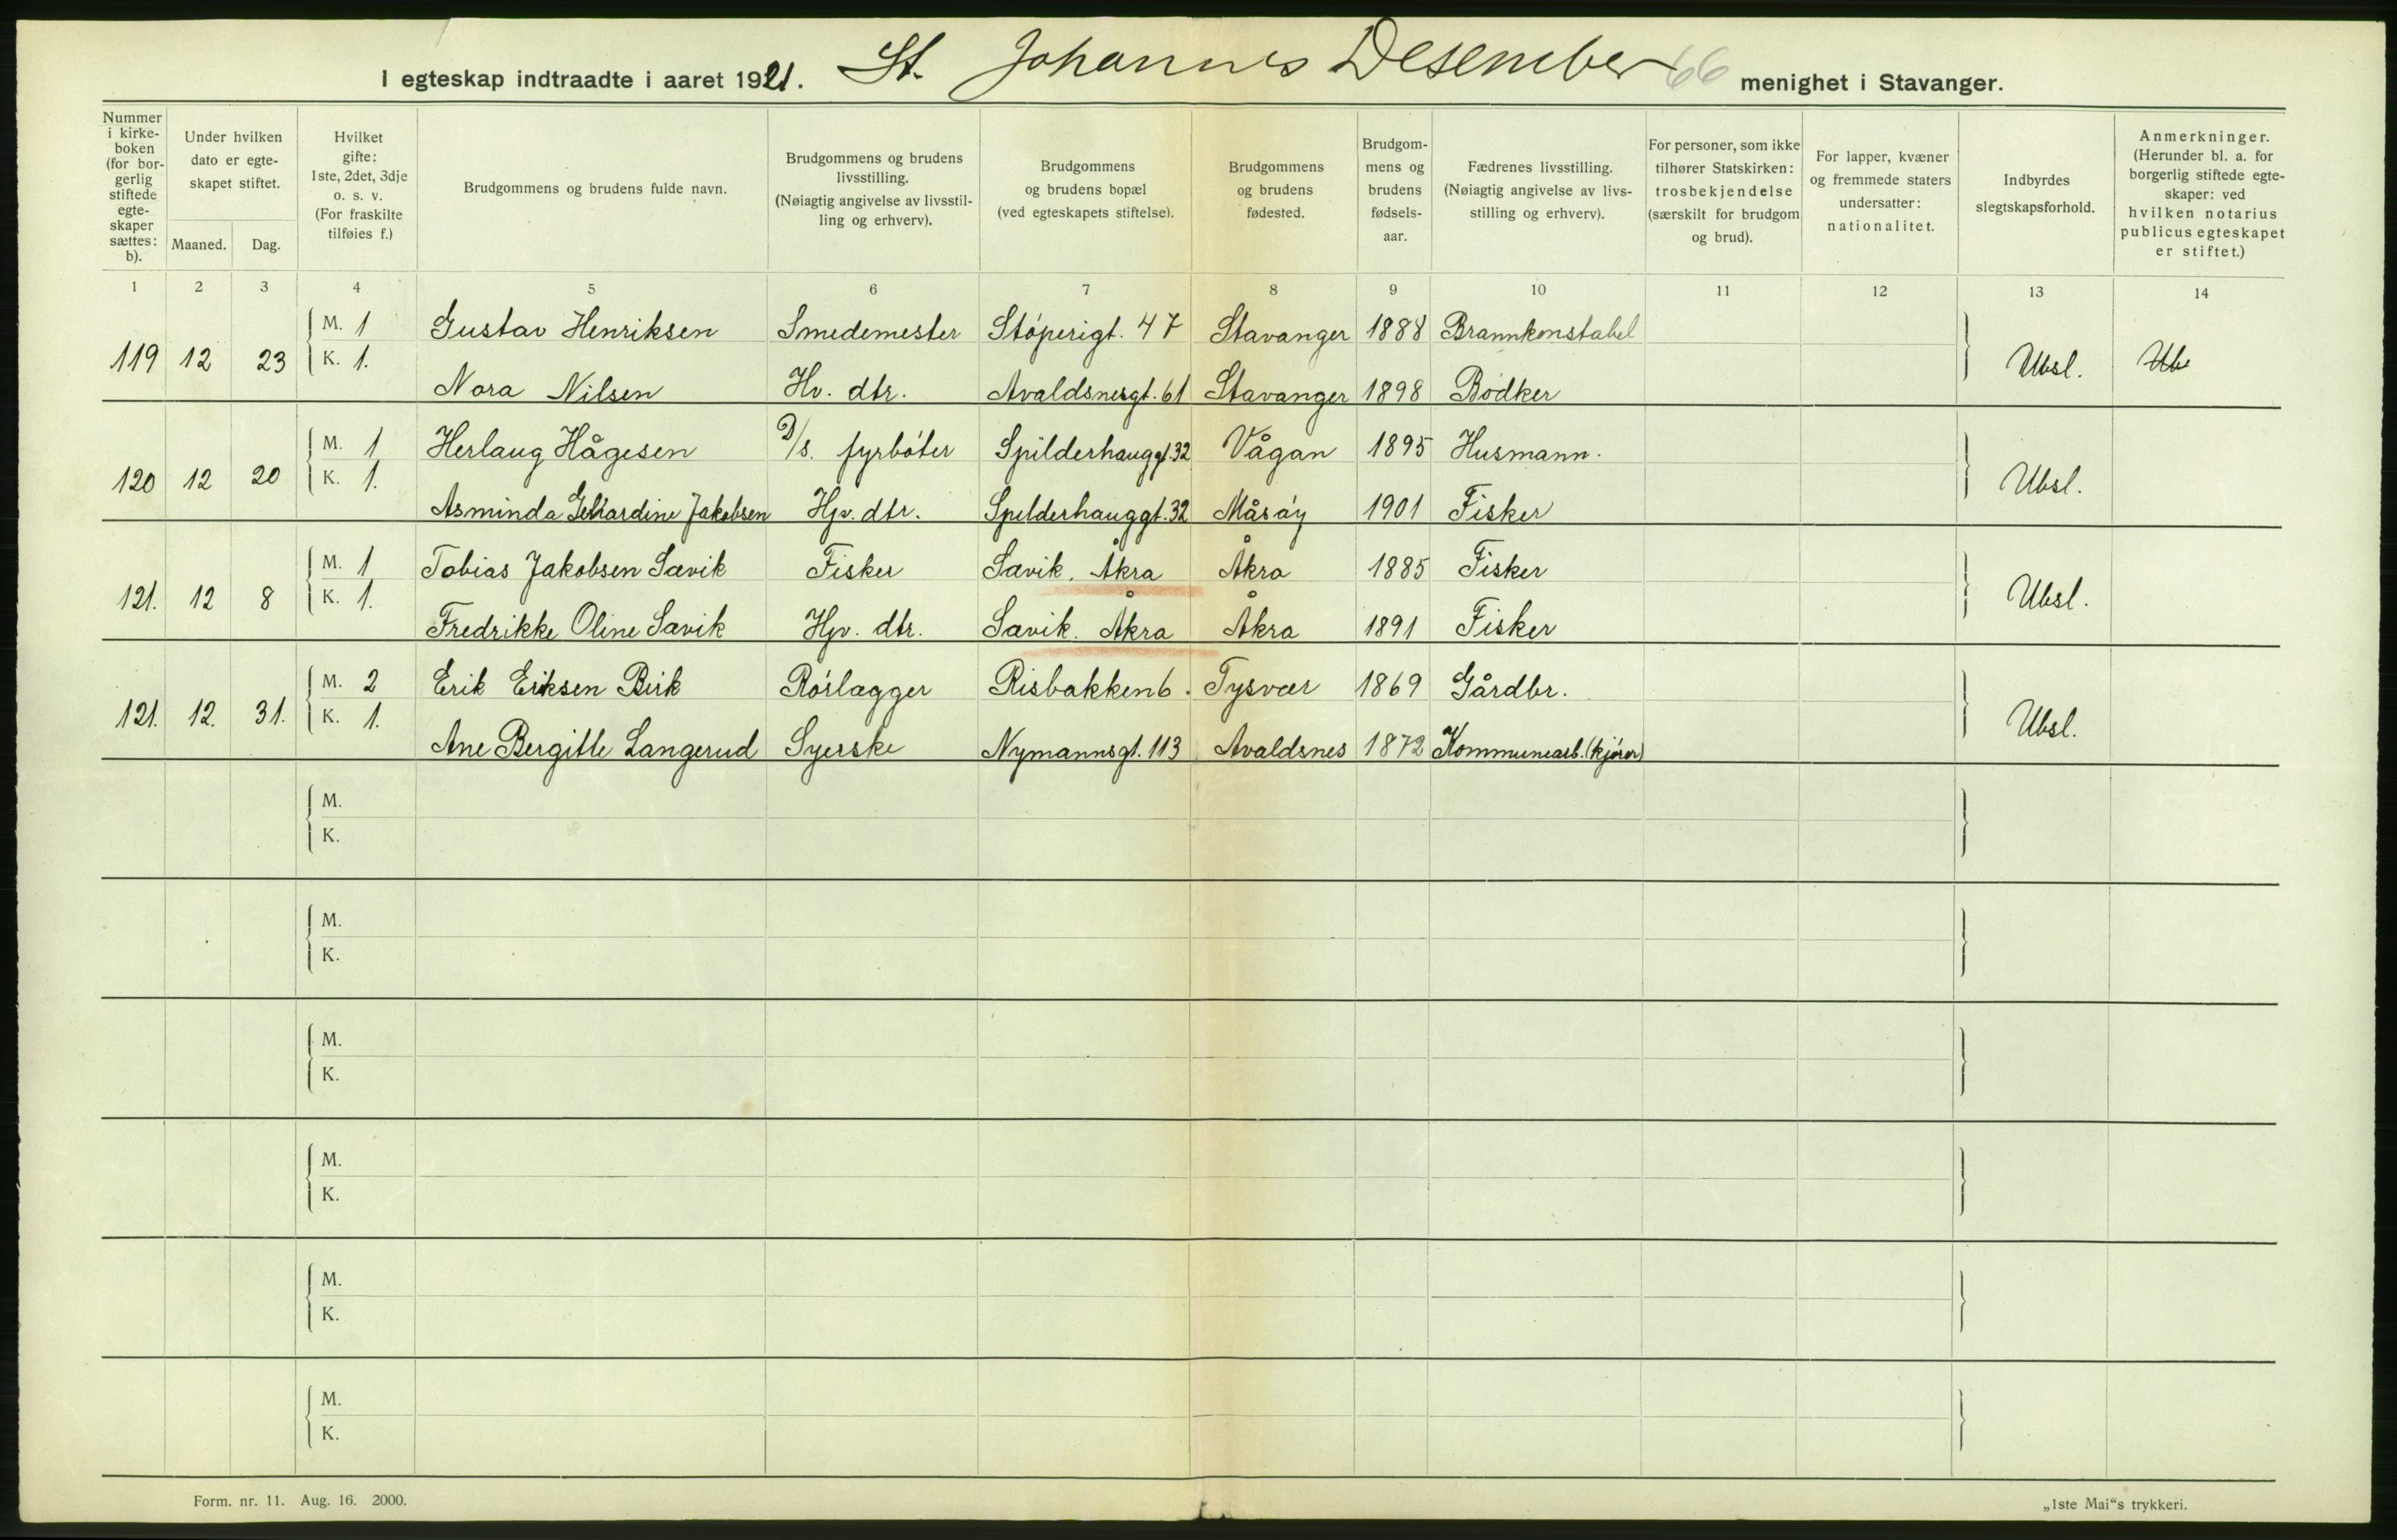 I egteskap indtraadte i aaret 1921. St. Johannes Desember 66 menighet i Stavanger.
Nummer i kirke-boken (for bor-gerlig stiftede egte-skaper sættes: b).
Under hvilken dato er egte-skapet stiftet.
Maaned. Dag.
Hvilket gifte: 1ste, 2det, 3dje o. s. v. (For fraskilte tilføies f.)
Brudgommens og brudens fulde navn.
Brudgommens og brudens livsstilling. (Nøiagtig angivelse av livsstil-ling og erhverv).
Brudgommens og brudens bopæl (ved egteskapets stiftelse).
Brudgommens og brudens fødested.
Brudgom-mens og brudens fødsels-aar.
Fædrenes livsstilling. (Nøiagtig angivelse av livs-stilling og erhverv).
For personer, som ikke tilhører Statskirken: trosbekjendelse (særskilt for brudgom og brud).
For lapper, kvæner og fremmede staters undersatter: nationalitet.
Indbyrdes slegtskapsforhold.
Anmerkninger. (Herunder bl. a. for borgerlig stiftede egte-skaper: ved hvilken notarius publicus egteskapet er stiftet.)
1 2 3 4 5 6 7 8 9 10 11 12 13 14
M. 1 Gustav Henriksen Smedemester Støperigt. 47 Stavanger 1888 Brannkonstabel
119 12 23 K. 1. Ubsl. Ub
Nora Nilsen Hv. dtr. Avaldsnesgt. 61 Stavanger 1898 Bødker
M. 1 Herlaug Hågesen D/s. fyrbøter Spilderhauggt. 32 Vågan 1895 Husmann.
120 12 20 K. 1. Ubsl.
Asminda Jakobsen Hjv. dtr. Spilderhauggt. 32 Måsøy 1901 Fisker
M. 1 Tobias Jakobsen Sævik Fisker Sævik. Åkra Åkra 1885 Fisker
121. 12 8 K. 1. Ubsl.
Fredrikke Oline Sævik Hjv. dtr. Sævik. Åkra Åkra 1891 Fisker
M. 2 Erik Eriksen Birk Rørlægger Risbakken 6. Tysvær 1869 Gårdbr.
121. 12. 31. K. 1. Ubsl.
Ane Bergitte Langerud Syerske Nymannsgt. 113 Avaldsnes 1872 Kommunearb. (kjører)
M.
K.
M.
K.
M.
K.
M.
K.
M.
K.
M.
K.
Form. nr. 11. Aug. 16. 2000.
„1ste Mai“s trykkeri.